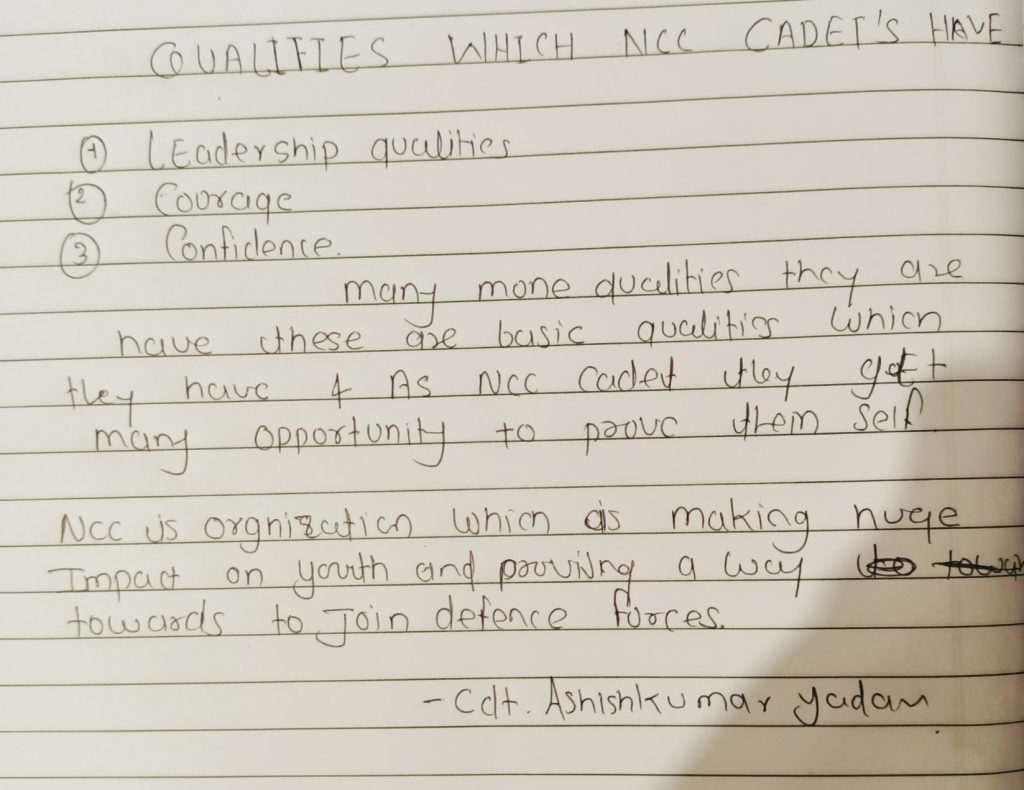 QUALITIES WHICH NCC CADET'S HAVE
① LEadership qualities
② Courage
③ Confidence.
many more qualities they are
have these are basic qualities which
they have & As NCC Cadet they get
many opportunity to prove them self
NCC is orgnization which is making huge
Impact on youth and prouviing a way
towards to Join defence forces.
- Cdt. Ashishkumar yadav